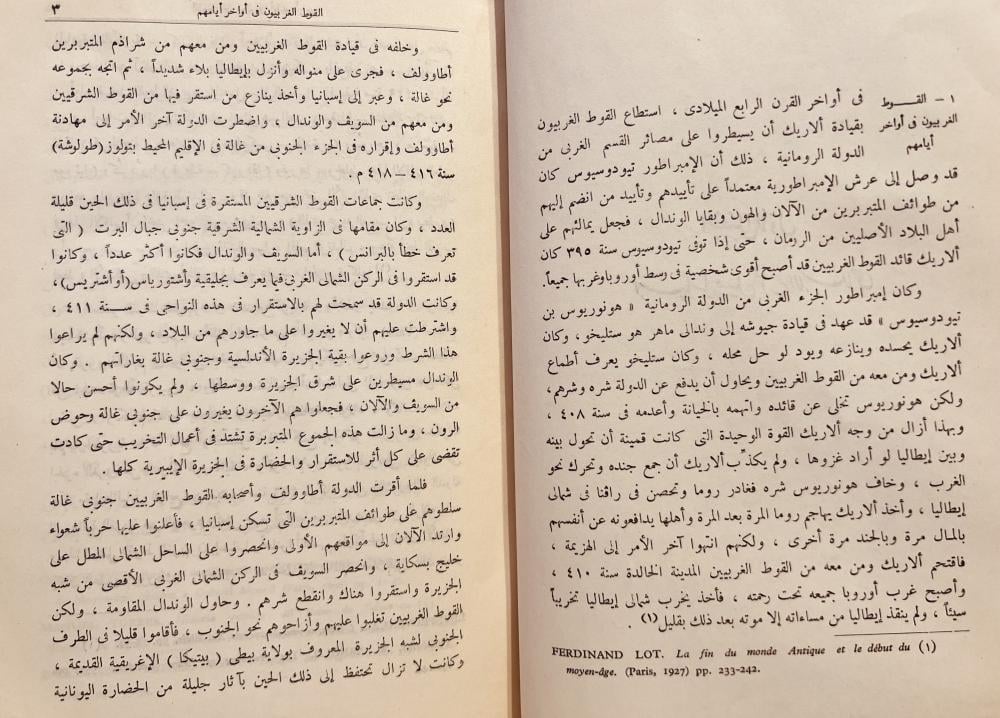 ١ – القـــوط
الغربيون فى أواخر
أيامهم
فى أواخر القرن الرابع الميلادى ، استطاع القوط الغربيون
بقيادة ألاريك أن يسيطروا على مصائر القسم الغربى من
الدولة الرومانية ، ذلك أن الإمبراطور تيودوسيوس كان
قد وصل إلى عرش الإمبراطورية معتمداً على تأييدهم وتأييد من انضم إليهم
من طوائف المتبربرين من الآلان والهون وبقايا الوندال ، فجعل يمالئهم على
أهل البلاد الأصليين من الرومان ، حتى إذا توفى تيودوسيوس سنة ٣٩٥ كان
ألاريك قائد القوط الغربيين قد أصبح أقوى شخصية فى وسط أوروبا وغربها جميعاً.
وكان إمبراطور الجزء الغربى من الدولة الرومانية « هونوريوس بن
تيودوسيوس » قد عهد فى قيادة جيوشه إلى وندالى ماهر هو ستليخو ، وكان
ألاريك يحسده وينازعه ويود لو حل محله ، وكان ستليخو يعرف أطماع
ألاريك ومن معه من القوط الغربيين ويحاول أن يدفع عن الدولة شره وشرهم ،
ولكن هونوريوس تخلى عن قائده واتهمه بالخيانة وأعدمه فى سنة ٤٠٨ ،
وبهذا أزال من وجه ألاريك القوة الوحيدة التى كانت قمينة أن تحول بينه
وبين إيطاليا لو أراد غزوها ، ولم يكذِّب ألاريك أن جمع جنده وتحرك نحو
الغرب ، وخاف هونوريوس شره فغادر روما وتحصن فى راڤنا فى شمالى
إيطاليا ، وأخذ ألاريك يهاجم روما المرة بعد المرة وأهلها يدافعونه عن أنفسهم
بالمال مرة وبالجند مرة أخرى ، ولكنهم انتهوا آخر الأمر إلى الهزيمة ،
فاقتحم ألاريك ومن معه من القوط الغربيين المدينة الخالدة سنة ٤١٠ ،
وأصبح غرب أوروبا جميعه تحت رحمته ، فأخذ يخرب شمالى إيطاليا تخريباً
سيئاً ، ولم ينقذ إيطاليا من مساءاته إلا موته بعد ذلك بقليل(١) .
(١) FERDINAND LOT. La fin du monde Antique et le début du
moyen-âge. (Paris, 1927) pp. 233-242.
القوط الغربيون فى أواخر أيامهم
٣
وخلفه فى قيادة القوط الغربيين ومن معهم من شراذم المتبربرين
أطاوولف ، فجرى على منواله وأنزل بإيطاليا بلاء شديداً ، ثم اتجه بجموعه
نحو غالة ، وعبر إلى إسبانيا وأخذ ينازع من استقر فيها من القوط الشرقيين
ومن معهم من السويف والوندال ، واضطرت الدولة آخر الأمر إلى مهادنة
أطاوولف وإقراره فى الجزء الجنوبى من غالة فى الإقليم المحيط بتولوز (طولوشة)
سنة ٤١٦ – ٤١٨ م .
وكانت جماعات القوط الشرقيين المستقرة فى إسبانيا فى ذلك الحين قليلة
العدد ، وكان مقامها فى الزاوية الشمالية الشرقية جنوبى جبال البرت ( التى
تعرف خطأ بالبرانس ) ، أما السويف والوندال فكانوا أكثر عدداً ، وكانوا
قد استقروا فى الركن الشمالى الغربى فيما يعرف بجليقية وأشتورياس (أو أشتريس) ،
وكانت الدولة قد سمحت لهم بالاستقرار فى هذه النواحى فى ســـنة ٤١١ ،
واشترطت عليهم أن لا يغيروا على ما جاورهم من البلاد ، ولكنهم لم يراعوا
هذا الشرط وروعوا بقية الجزيرة الأندلسية وجنوبى غالة بغاراتهم . وكان
الوندال مسيطرين على شرق الجزيرة ووسطها ، ولم يكونوا أحسن حالا
من السويف والآلان ، فجعلوا هم الآخرون يغيرون على جنوبى غالة وحوض
الرون ، وما زالت هذه الجموع المتبربرة تشتد فى أعمال التخريب حتى كادت
تقضى على كل أثر للاستقرار والحضارة فى الجزيرة الإيبيرية كلها .
فلما أقرت الدولة أطاوولف وأصحابه القوط الغربيين جنوبى غالة
سلطوهم على طوائف المتبربرين التى تسكن إسبانيا ، فأعلنوا عليها حرباً شعواء
وارتد الآلان إلى مواقعهم الأولى وانحصروا على الساحل الشمالى المطل على
خليج بسكاية ، وانحصر السويف فى الركن الشمالى الغربى الأقصى من شبه
الجزيرة واستقروا هناك وانقطع شرهم . وحاول الوندال المقاومة ، ولكن
القوط الغربيين تغلبوا عليهم وأزاحوهم نحو الجنوب ، فأقاموا قليلا فى الطرف
الجنوبى لشبه الجزيرة المعروف بولاية بيطى ( بيتيكا ) الإغريقية القديمة ،
وكانت لا تزال تحتفظ إلى ذلك الحين بآثار جليلة من الحضارة اليونانية